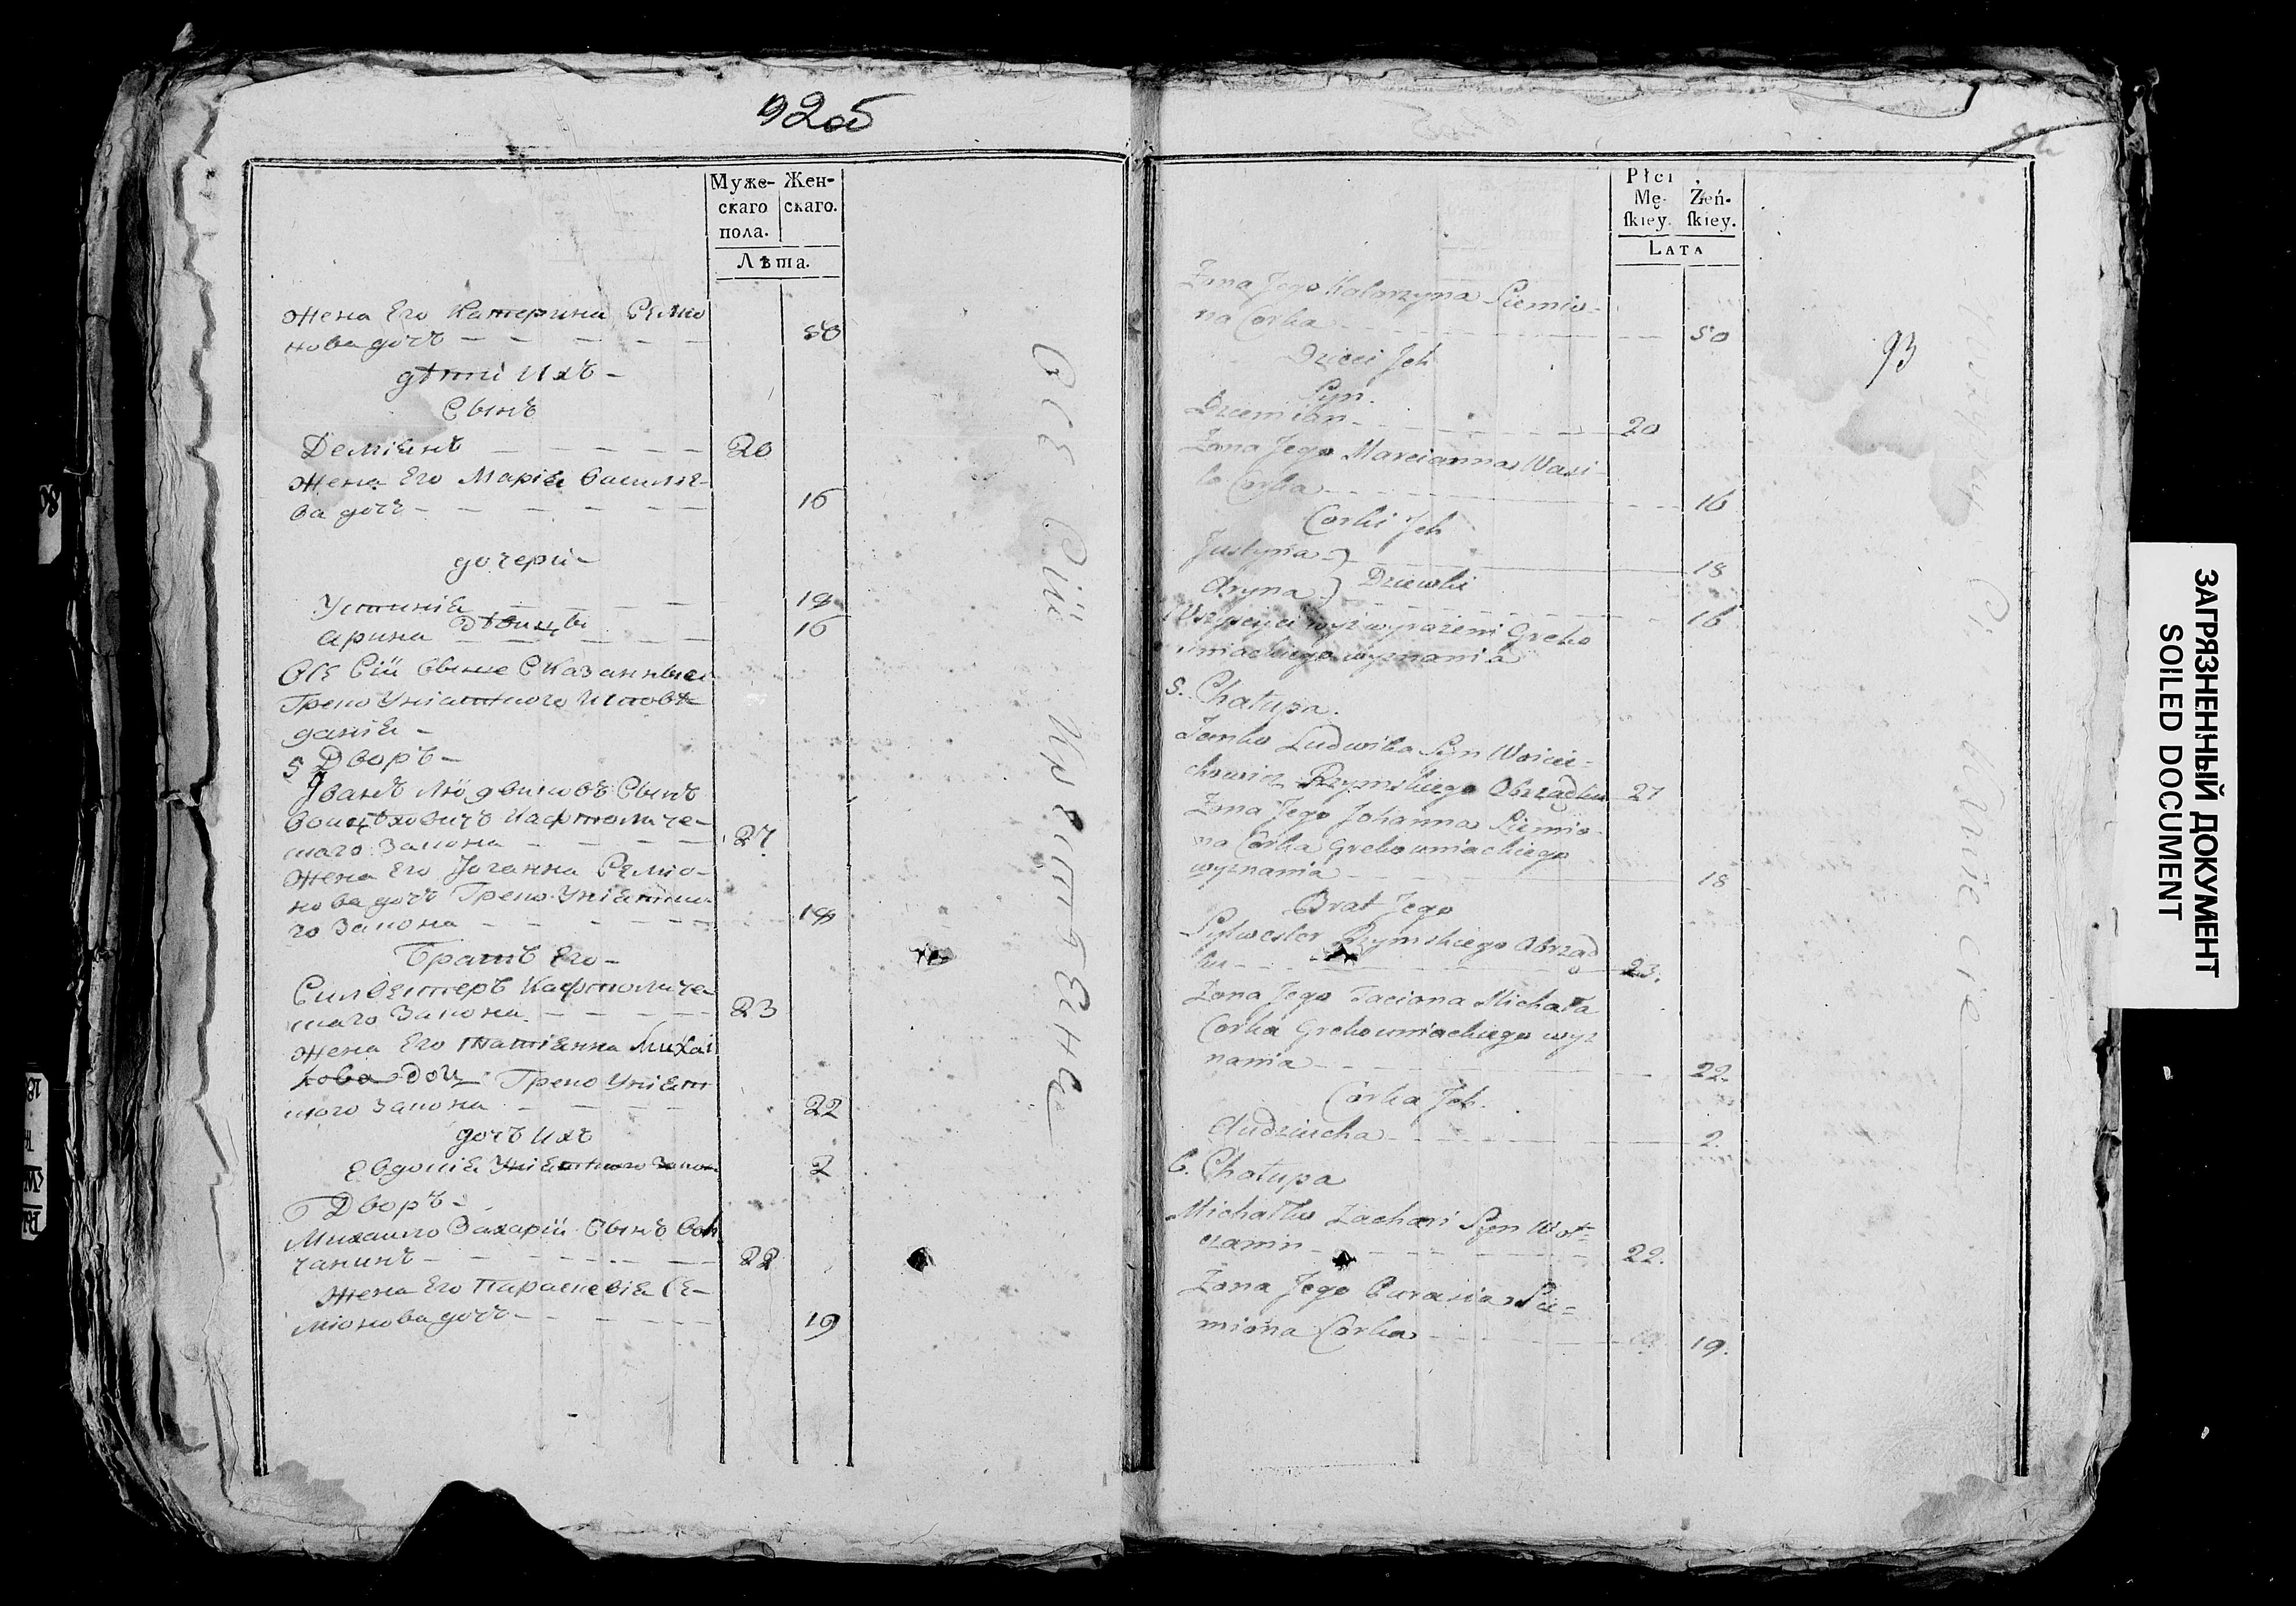 92об
Муже- Жен-
скаго скаго.
пола.
Лѣта.
жена Его Катерина Семио
нова дочъ — — — — — 50
дѣти Ихъ —
Сынъ
Деміянъ — — — — — 20
жена Его Марія Василе-
ва дочъ — — — — — 16
дочери —
Устинія — — — 18
Арина Дѣвицы 16
Всѣ Сій выше Сказанные
Греко Уніатского Исповѣ
данія —
5 Дворъ —
Іванъ Людвиковъ Сынъ
Войцѣховичъ Кафтоличе-
скаго Закона — — — 27
Жена Его Іоганна Семио-
нова дочъ Греко Уніятско-
го Закона — — — — 18
Братъ Его —
Силвестеръ Кафтоличе
скаго Закона — — — 23
жена Его татіянна Михай
лова доч Греко Уніят
ского Закона — — — — 22
дочъ Ихъ
Евдокія Уніятского Закон 2
6 Дворъ —
Михайло Захарій Сынъ Вол
чанинъ — — — — — 22
Жена Его Параскевія Се-
міонова дочъ — — — — 19
Всѣ Сій Крестьяне
Płci
Mę- Żeń-
ſkiey. ſkiey.
Lata
Zona Jego Katarzyna Siemio-
na Corka — — — 50
Dzieci Jch
Syn.
Dziemian — — — 20
Zona Jego Marcianna Wasi
la Corka — — — 16
Corki Jch
Justyna ) — 18
Aryna ) Dziewki — 16
Wszyscy wyż wyrażeni Greko
uniackiego wyznania
5. Chałupa.
Janko Ludwika Syn Woicie-
chowicz Rzymskiego Obrządku 27
Zona Jego Johanna Siemio-
na Corka Grekouniackiego
wyznania — — — 18
Brat Jego
Sylwester Rzymskiego Obrząd
ku — — — 23.
Zona Jego Taciana Michała
Corka Grekouniackiego wyz
nania — — — 22.
Corka Jch.
Audziucha — — — 2.
6. Chałupa
Michałko Zachari Syn Woł-
czanin — — — 22.
Zona Jego Parasia Sie=
miona Corka — — — 19.
93
ЗАГРЯЗНЕННЫЙ ДОКУМЕНТ
SOILED DOCUMENT